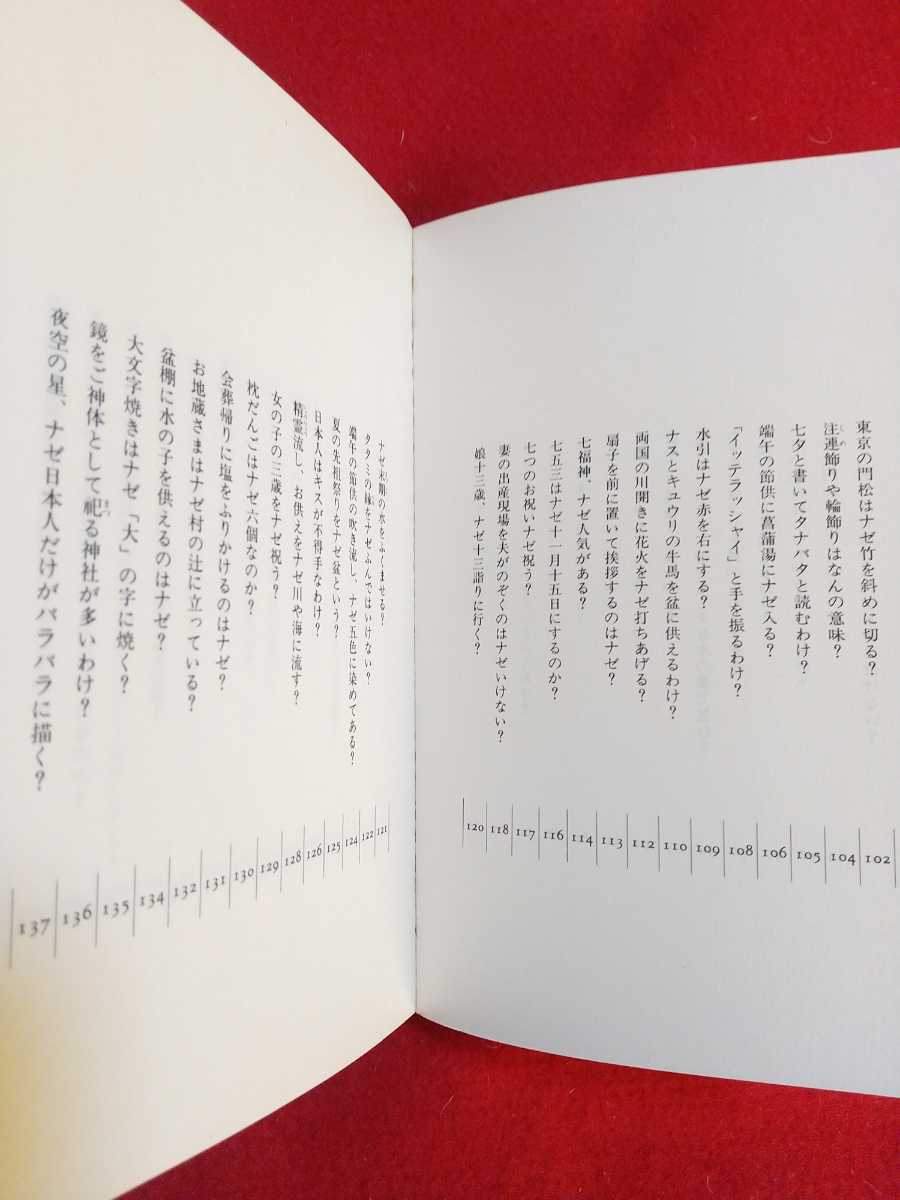 東京の門松はナゼ竹を斜めに切る? 102
注連飾りや輪飾りはなんの意味? 104
七夕と書いてタナバタと読むわけ? 105
端午の節供に菖蒲湯にナゼ入る? 106
「イッテラッシャイ」と手を振るわけ? 108
水引はナゼ赤を右にする? 109
ナスとキュウリの牛馬を盆に供えるわけ? 110
両国の川開きに花火をナゼ打ちあげる? 112
扇子を前に置いて挨拶するのはナゼ? 113
七福神、ナゼ人気がある? 114
七五三はナゼ十一月十五日にするのか? 116
七つのお祝いナゼ祝う? 117
妻の出産現場を夫がのぞくのはナゼいけない? 118
娘十三歳、ナゼ十三詣りに行く? 120
ナゼ末期の水をふくませる? 121
タタミの縁をナゼふんではいけない? 122
端午の節供の吹き流し、ナゼ五色に染めてある? 124
夏の先祖祭りをナゼ盆という? 125
日本人はキスが不得手なわけ? 126
精霊流し、お供えをナゼ川や海に流す? 128
女の子の三歳をナゼ祝う? 129
枕だんごはナゼ六個なのか? 130
会葬帰りに塩をふりかけるのはナゼ? 131
お地蔵さまはナゼ村の辻に立っている? 132
盆棚に水の子を供えるのはナゼ? 134
大文字焼きはナゼ「大」の字に焼く? 135
鏡をご神体として祀る神社が多いわけ? 136
夜空の星、ナゼ日本人だけがバラバラに描く? 137